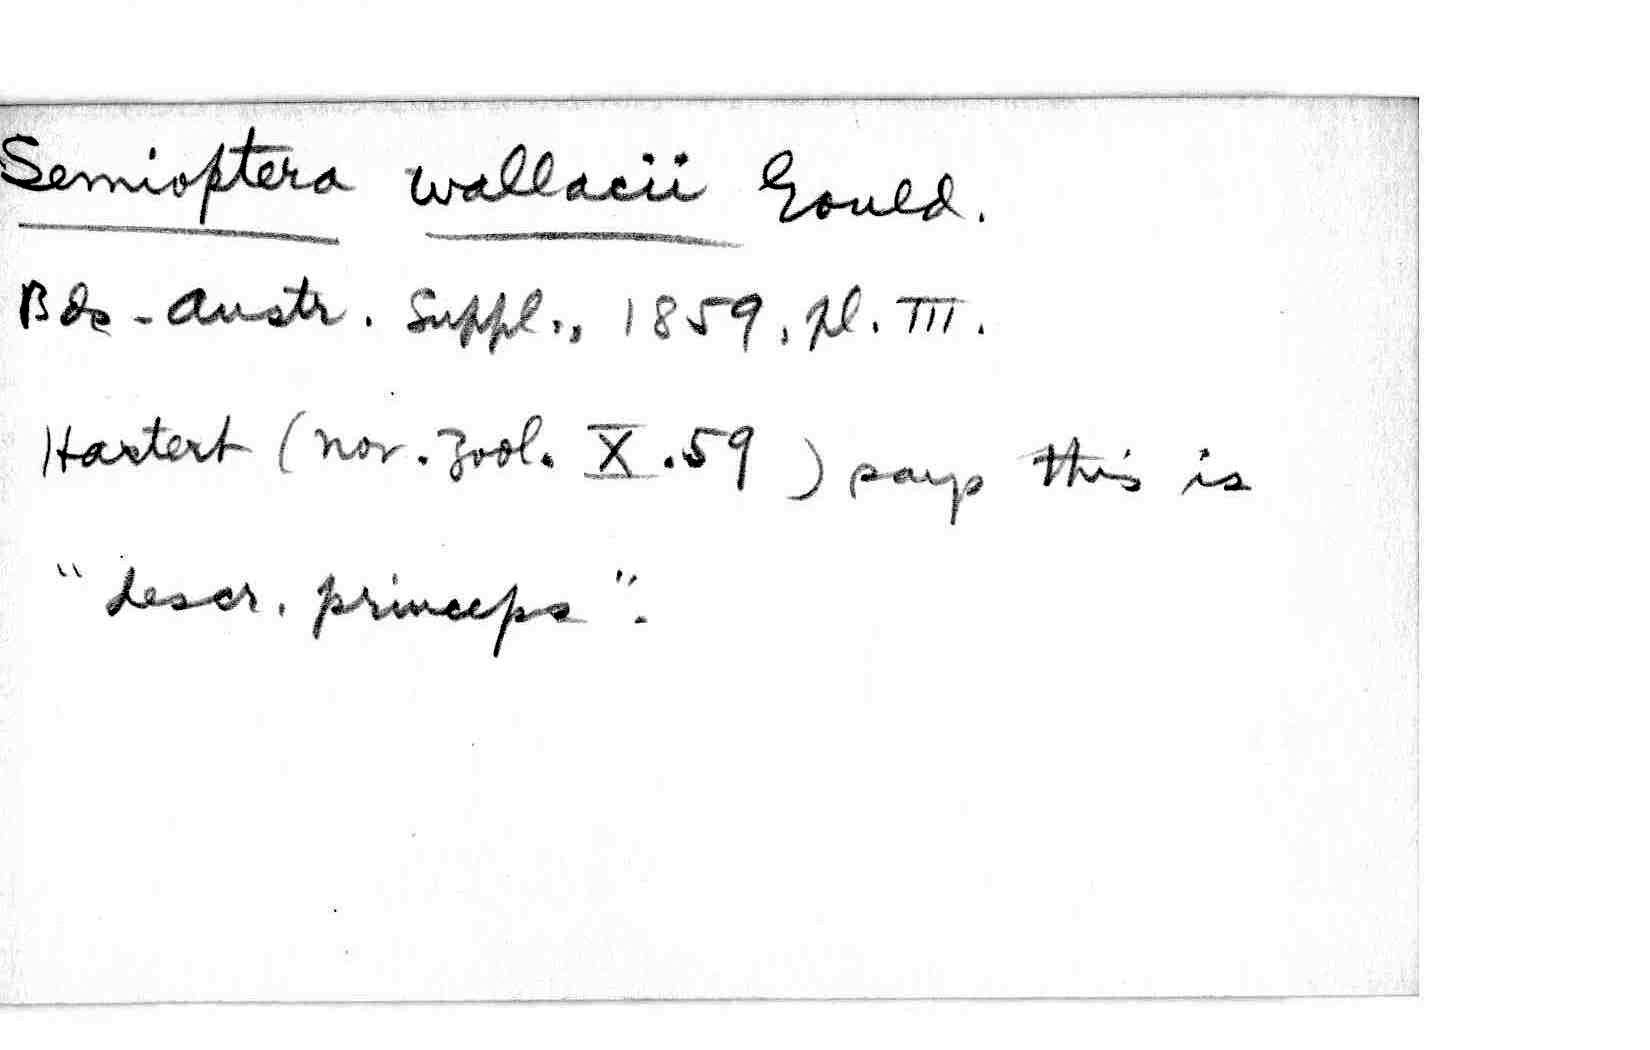 Semioptera wallacii Gould.
Bds - Austr. Suppl., 1859, pl. III.
Hartert (Nov. Zool. X. 59) says this is
"descr. princeps".